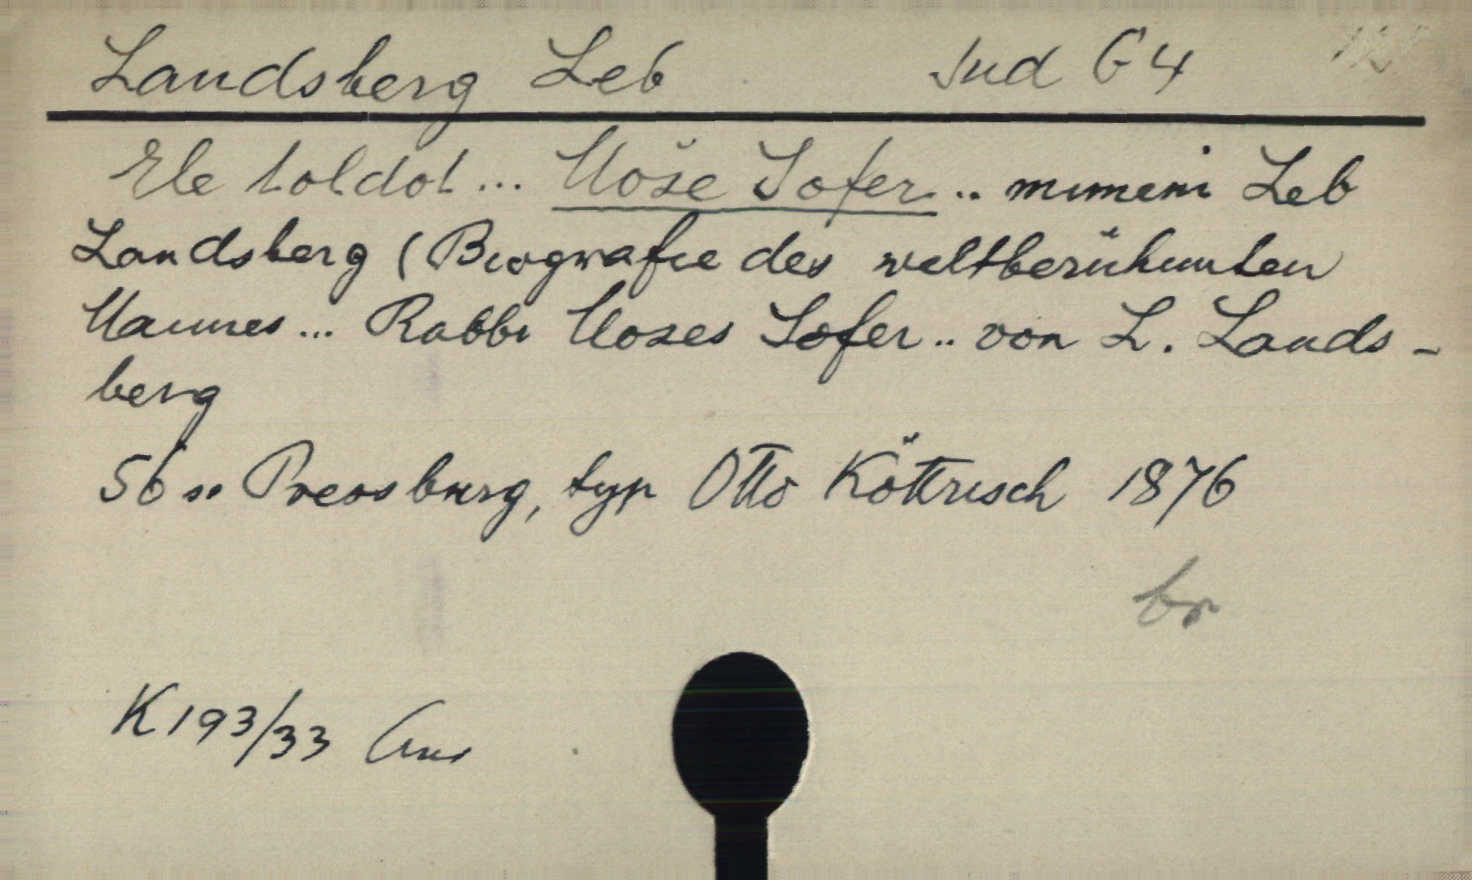 Landsberg Leb Jud G 4
Ele toldot ... Moše Sofer .. mimeni Leb
Landsberg (Biografie des weltberühmten
Mannes ... Rabbi Moses Sofer .. von L. Lands-
berg
56 s. Pressburg, typ Otto Köttrisch 1876
br
K 193/33